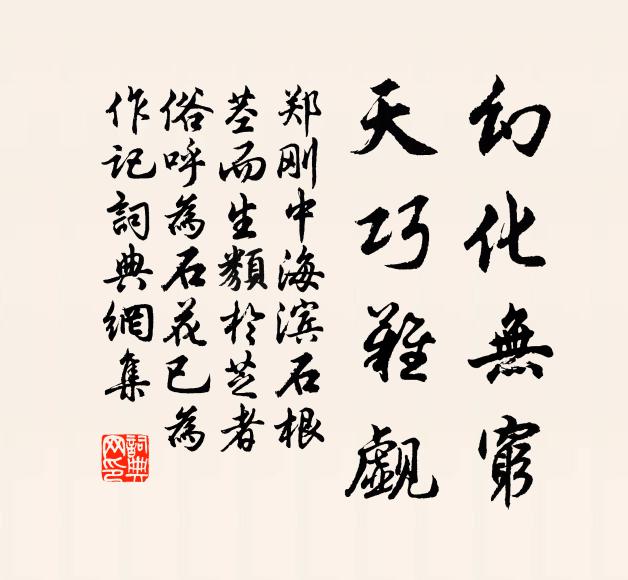 幻化無窮
天巧難覷
郑刚中海滨石根
茎而生類於芝者
俗呼為石花已為
作记詞典網集
詞典网印